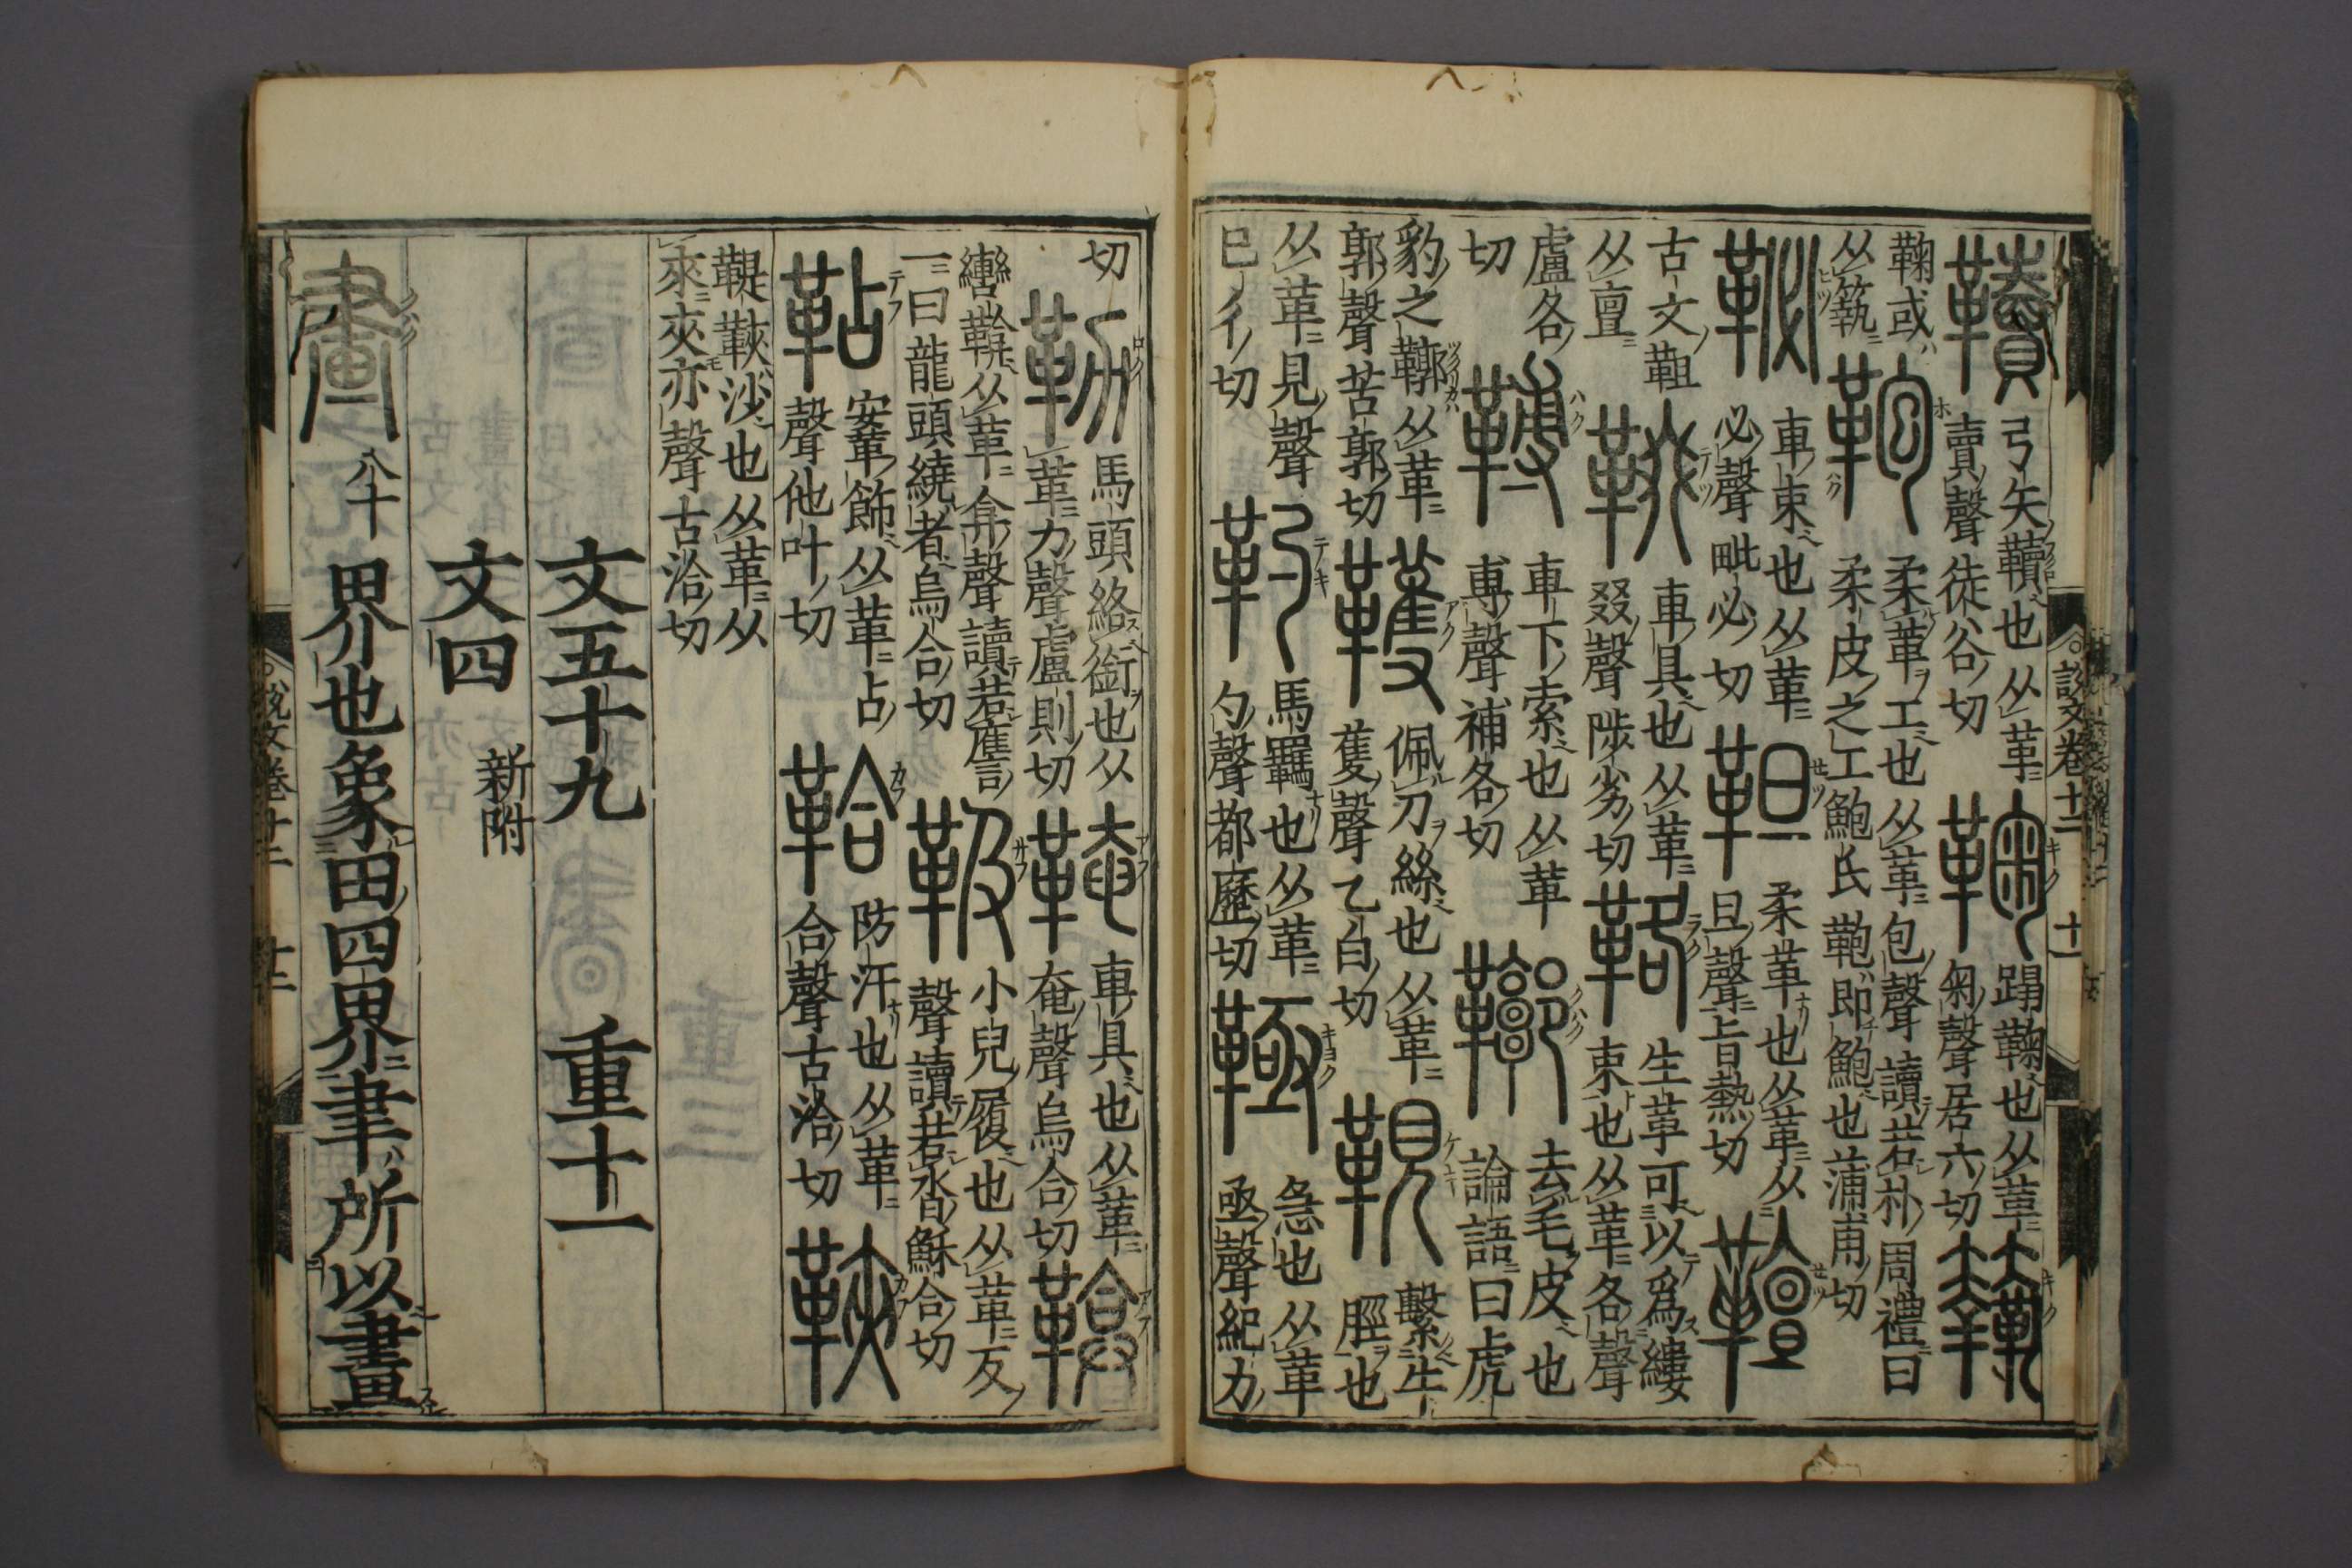 韥 弓矢韥也从革
賣聲徒谷切
鞠 蹋鞠也从革
匊聲居六切
鞠或
从𥷚
鞄 柔革工也从革包聲讀若朴周禮曰
柔皮之工鮑氏鞄即鮑也蒲角切
䩛 車束也从革
必聲毗必切
靼 柔革也从革从
旦聲旨熱切
古文靼
从亶
車具也从革
叕聲陟劣切
鞈 生革可以爲縷
束也从革各聲
盧各
切
車下索也从革
尃聲補各切
鞹 去毛皮也
論語曰虎
豹之鞹从革
郭聲苦郭切
韄 佩刀絲也从革
蒦聲乙白切
䩤 繫牛
脛也
从革見聲
巳彳切
靮 馬羈也从革
勺聲都歷切
䩯 急也从革
亟聲紀力
切
勒 馬頭絡銜也从
革力聲盧則切
䩭 車具也从革
奄聲烏合切
轡鞥从革弇聲讀若譍
一曰龍頭繞者烏合切
靸 小兒履也从革及
聲讀若沓穌合切
鞊 安䩞飾从革占
聲他叶切
鞈 防汗也从革
合聲古洽切
鞮䩡沙也从革从
夾夾亦聲古洽切
文五十九 重十一
文四 新附
畫 八十 界也象田四界聿所以畫
說文卷十二 十一
說文卷十二 十二